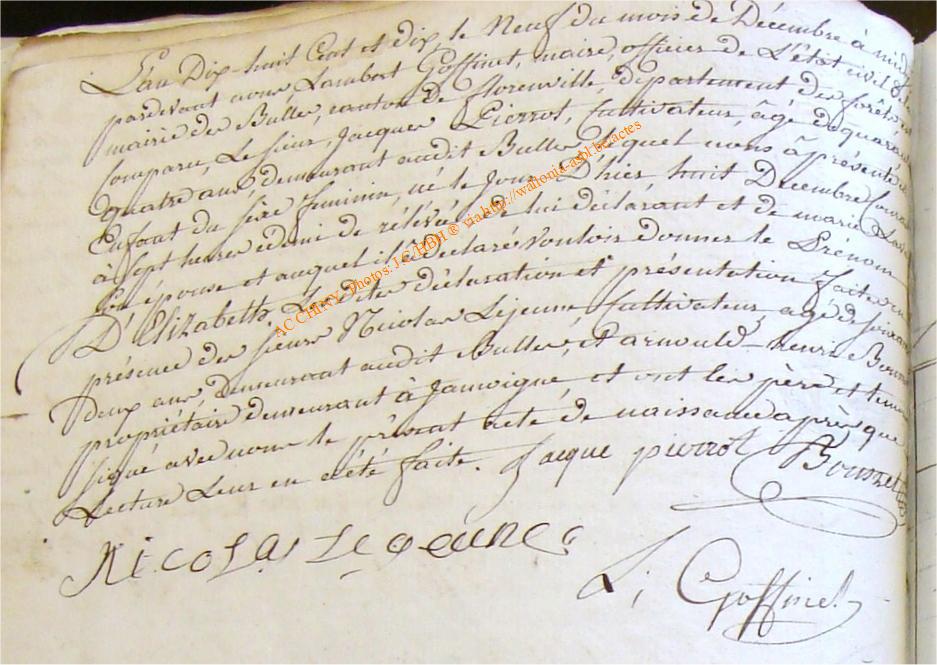 L'an Dix-huit Cent et dix, le Neuf du mois de Décembre à midi
pardevant nous Lambert Goffinet, maire, officier de L'état civil de la
mairie des Bulles, canton de florenville, département des forêts, est
Comparu, Le sieur, Jacques Pierrot, Cultivateur, âgé de quarante
quatre ans demeurant audit Bulles, Lequel nous à présenté un
Enfant du sèxe féminin, né le Jour D'hier huit Décembre Courant
à sept heures edemi de rélévée de lui déclarant et de marie
son épouse et auquel il à déclaré vouloir donner le Prénom
D'Elizabeth, Lesdites déclaration et présentation faites en
présence des sieurs Nicolas Lejeune Cultivateur, agé de soixante
deux ans, Demeurant audit Bulles, et arnould-henri
propriétaire demeurant à Jamoigne, et ont les père et temoins
signé avec nous le présent acte de naissance après que
Lecture Leur en a été faite. Jacque pierrot
NicoLas Lejeune
L; Goffinet
ACCHINY Photos: J.C/HBH ® via http://wahonia-asbl.be/actes